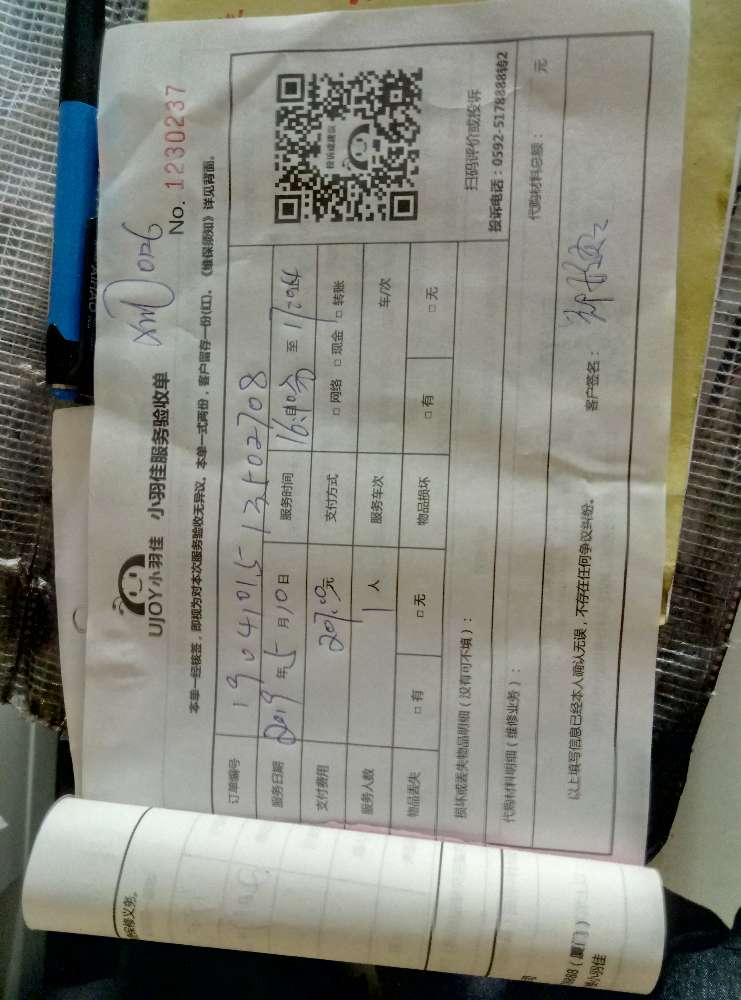 UJOY小羽佳 小羽佳服务验收单
No. 1230237
本单一经核签，即视为对本次服务验收无异议。本单一式两份，客户留存一份(红)。《维保须知》详见背面。
订单编号
服务日期 2019 年 5 月 10 日 服务时间 至
支付费用 元 支付方式 □ 网络 □ 现金 □ 转账
服务人数 1 人 服务车次 车/次
物品丢失 □ 有 □ 无 物品损坏 □ 有 □ 无
投诉或建议
扫码评价或投诉
投诉电话：0592-5178888转2
损坏或丢失物品明细（没有可不填）：
代购材料明细（维修业务）： 代购材料总额： 元
以上填写信息已经本人确认无误，不存在任何争议纠纷。 客户签名：
保修义务。
888（厦门）
小羽佳